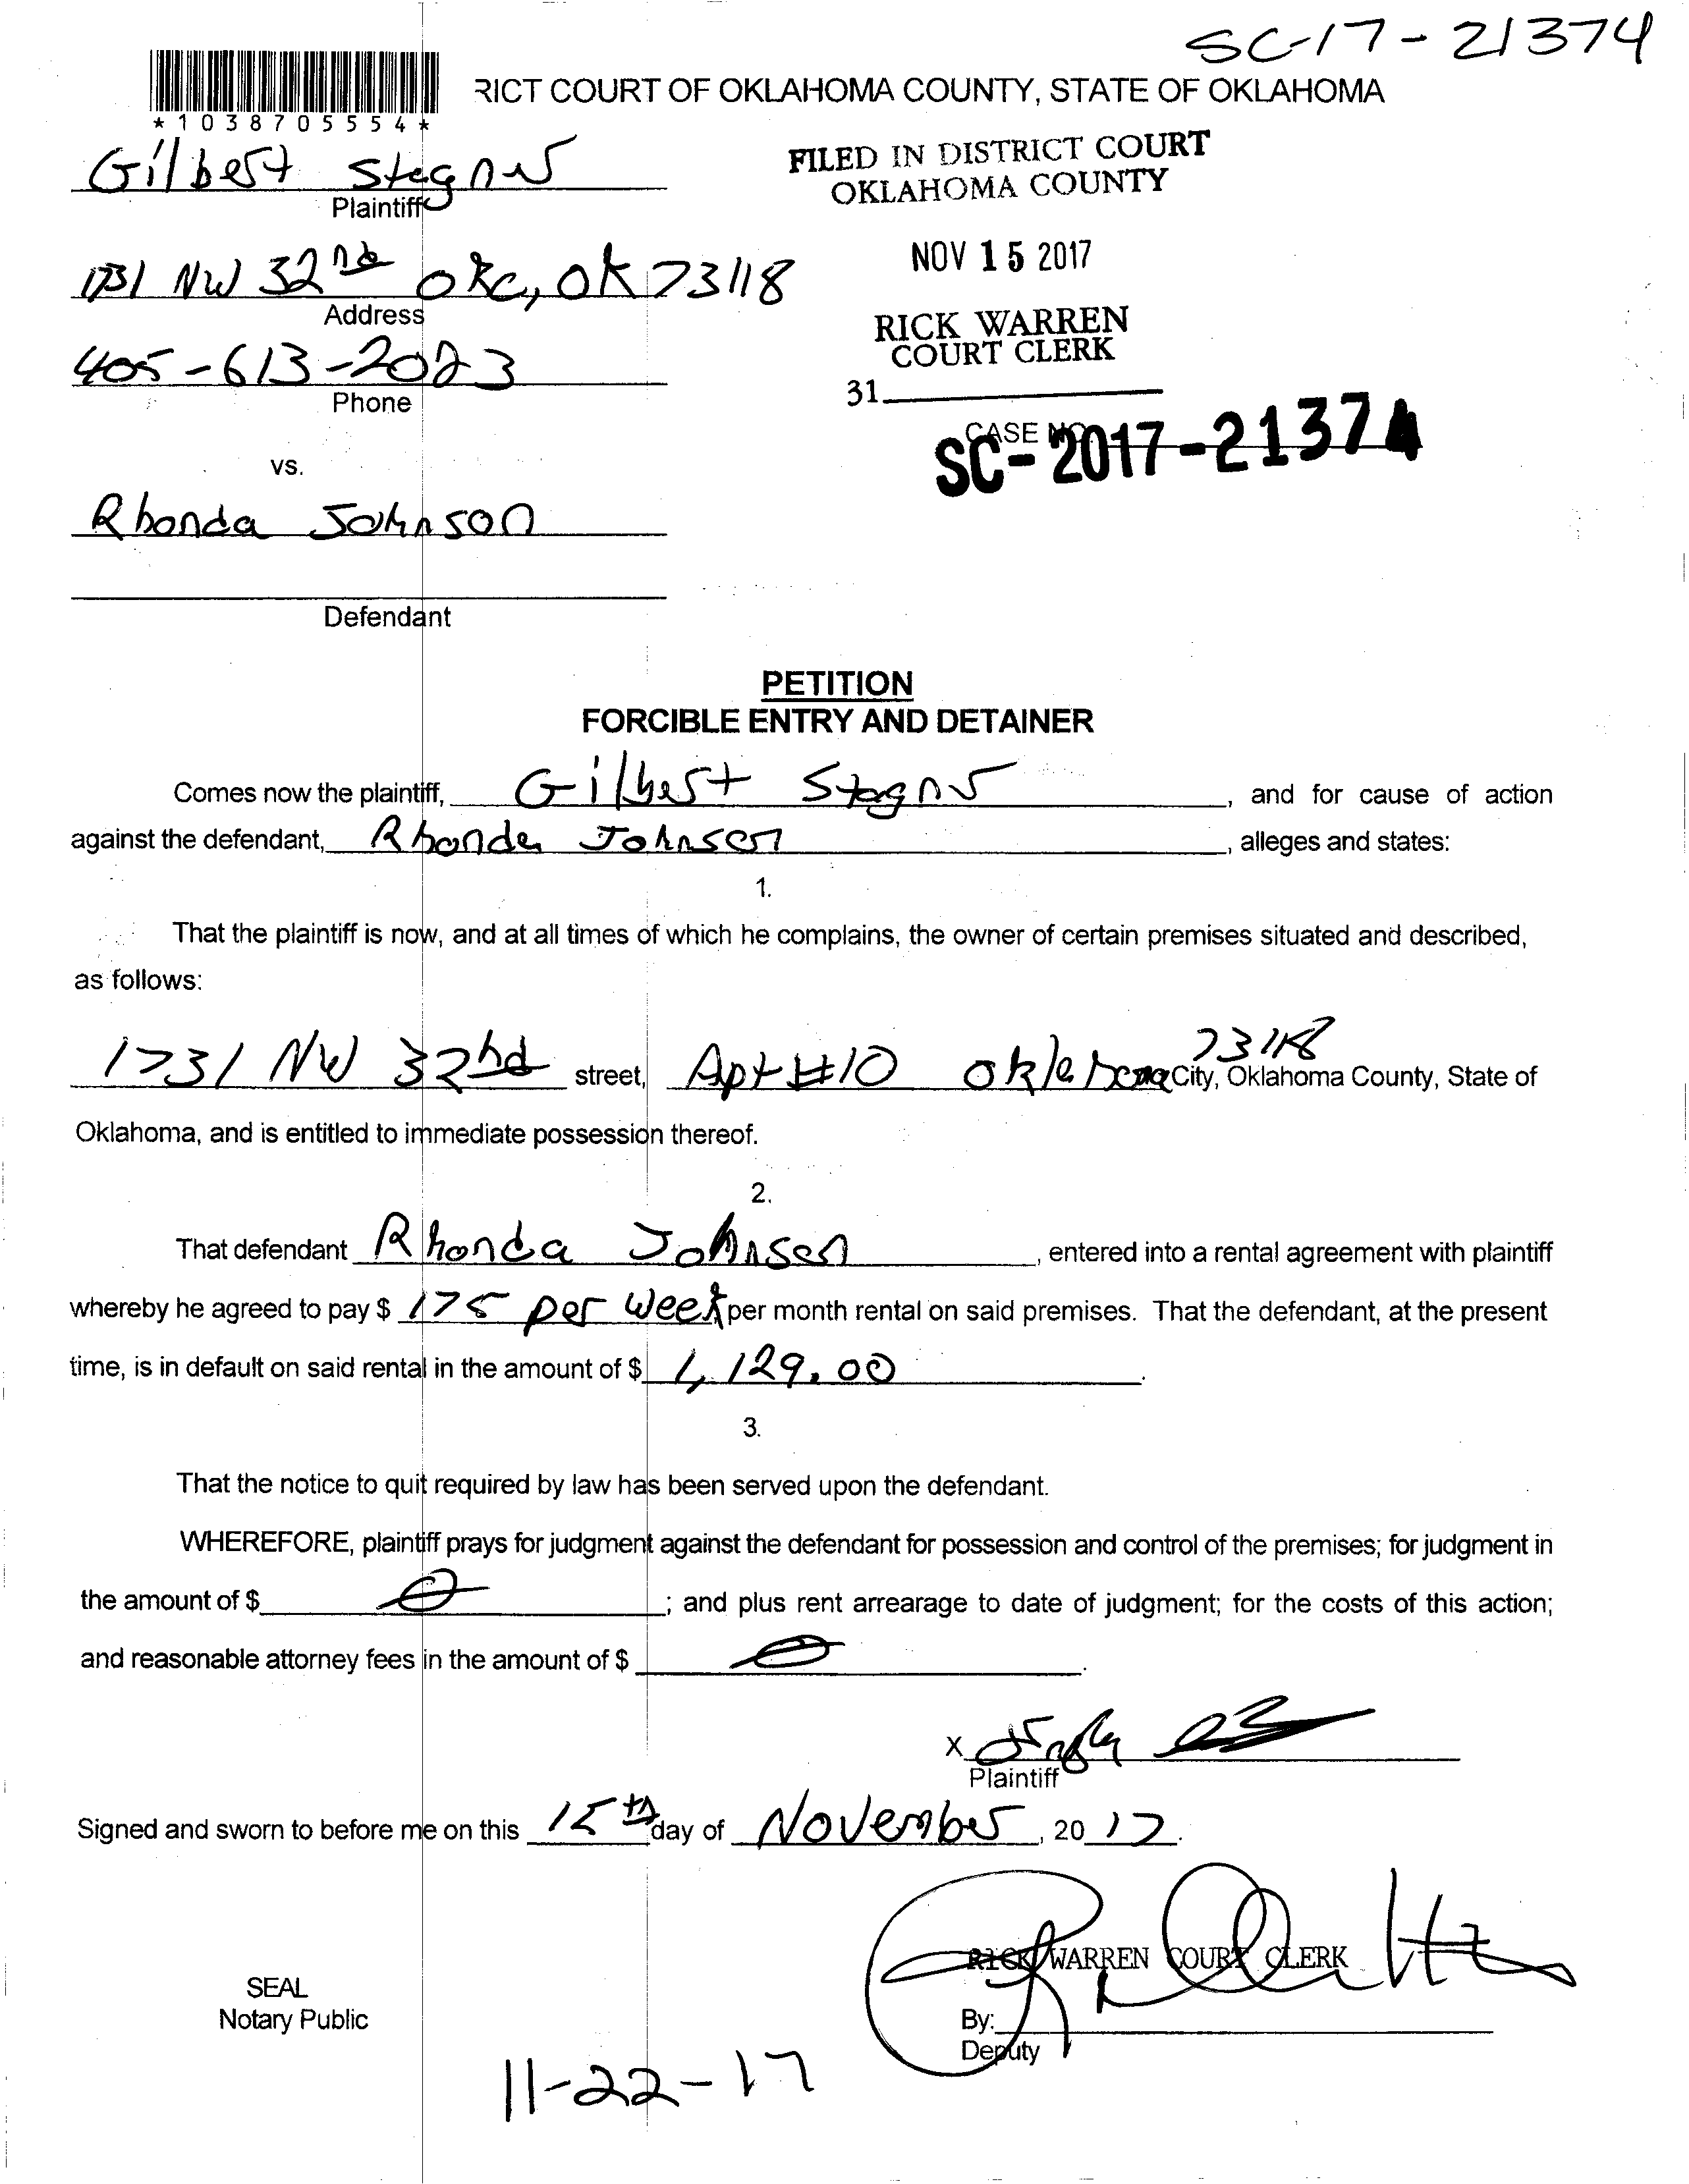 SC-17-21374
*1038705554*
RICT COURT OF OKLAHOMA COUNTY, STATE OF OKLAHOMA
Gilbert Stegner
Plaintiff
FILED IN DISTRICT COURT
OKLAHOMA COUNTY
1731 NW 32nd OKC, OK 73118
Address
NOV 15 2017
405-613-2023
Phone
RICK WARREN
COURT CLERK
31
CASE NO.
SC-2017-21374
vs.
Rhonda Johnson
Defendant
PETITION
FORCIBLE ENTRY AND DETAINER
Comes now the plaintiff, Gilbert Stegner, and for cause of action
against the defendant, Rhonda Johnson, alleges and states:
1.
That the plaintiff is now, and at all times of which he complains, the owner of certain premises situated and described,
as follows:
1731 NW 32nd street, Apt #10 Oklahoma City, 73118 Oklahoma County, State of
Oklahoma, and is entitled to immediate possession thereof.
2.
That defendant Rhonda Johnson, entered into a rental agreement with plaintiff
whereby he agreed to pay $ 175 per week per month rental on said premises. That the defendant, at the present
time, is in default on said rental in the amount of $ 1,129.00.
3.
That the notice to quit required by law has been served upon the defendant.
WHEREFORE, plaintiff prays for judgment against the defendant for possession and control of the premises; for judgment in
the amount of $ 0; and plus rent arrearage to date of judgment; for the costs of this action;
and reasonable attorney fees in the amount of $ 0.
X
Plaintiff
Signed and sworn to before me on this 15th day of November, 2017.
RICK WARREN COURT CLERK
SEAL
Notary Public
By:
Deputy
11-22-17